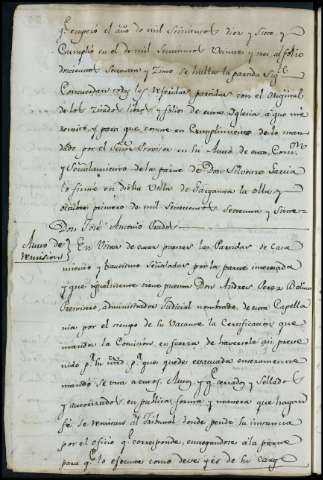 qe empezó el año de mil Setecientos diez y Siete, y
Cumplió en el de mil Setecientos Veinte y seis, al folio
doscientos Sesenta y Zinco se halla la partida Sigte
Concuerdan todas las referidas partidas con el Original
de los Zitados libros y folios de esta Iglesia, a que me
remito, y para que conste en Cumplimiento de lo man
dado por el Señor Provisor en su Auto de esta Comon
y Señalamiento de la parte de Don Silvestre García
lo firmo en dicha Villa de
octubre primero de mil Setecientos Setenta y Siete
Don José Antonio
Auto de
remision
En Vista de estar puestas las Partidas de Casa
miento y Bautismo Señaladas por la parte interesada
y que igualmente tiene puesta Don Andres Perez
Presvitero, administrador Judicial nombrado de esta Capella
nia por el tiempo de su Vacante la Certificacion que
manda la Comision, en fuerza de haversele asi preve
nido pr
mando se una a estos Autos y qe cerrados y Sellados
y autorizados en publica forma y manera que hagan
fe se remitan al Tribunal donde pende su instancia
por el oficio qe corresponde, entregandose a la parte
para qe lo execute como deve y es de su cargo